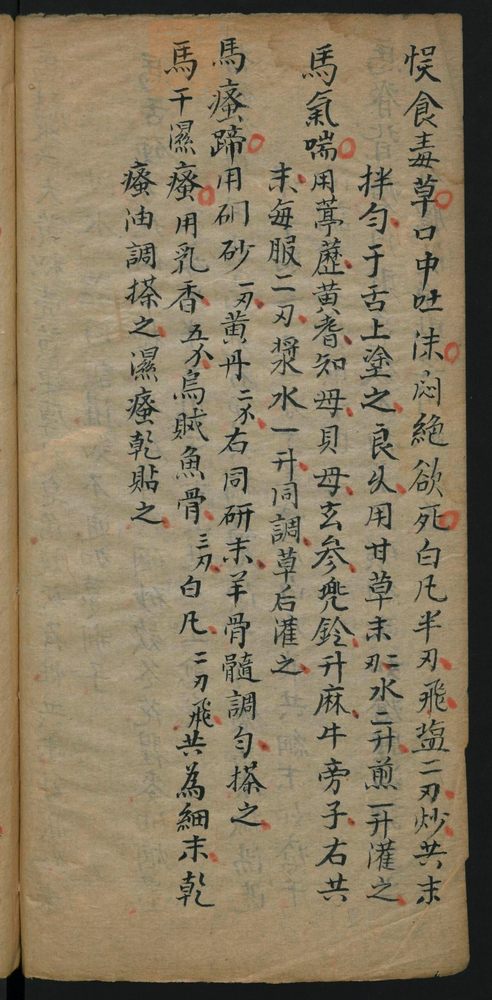 悮食毒草口中吐沫闷絕欲死白凡半刃飛盐二刃炒共末
拌匀于舌上塗之良久用甘草末二刃水二升煎一升灌之
馬氣喘用葶藶黄耆知母貝母玄参兠鈴升麻牛旁子右共
末每服二刃漿水一升同調草后灌之
馬瘙蹄用硇砂一刃黄丹二不右同研末羊骨髓調匀搽之
馬干濕瘙用乳香五不烏賊魚骨三刃白凡二刃飛共為細末乾
瘙油調搽之濕瘙乾貼之